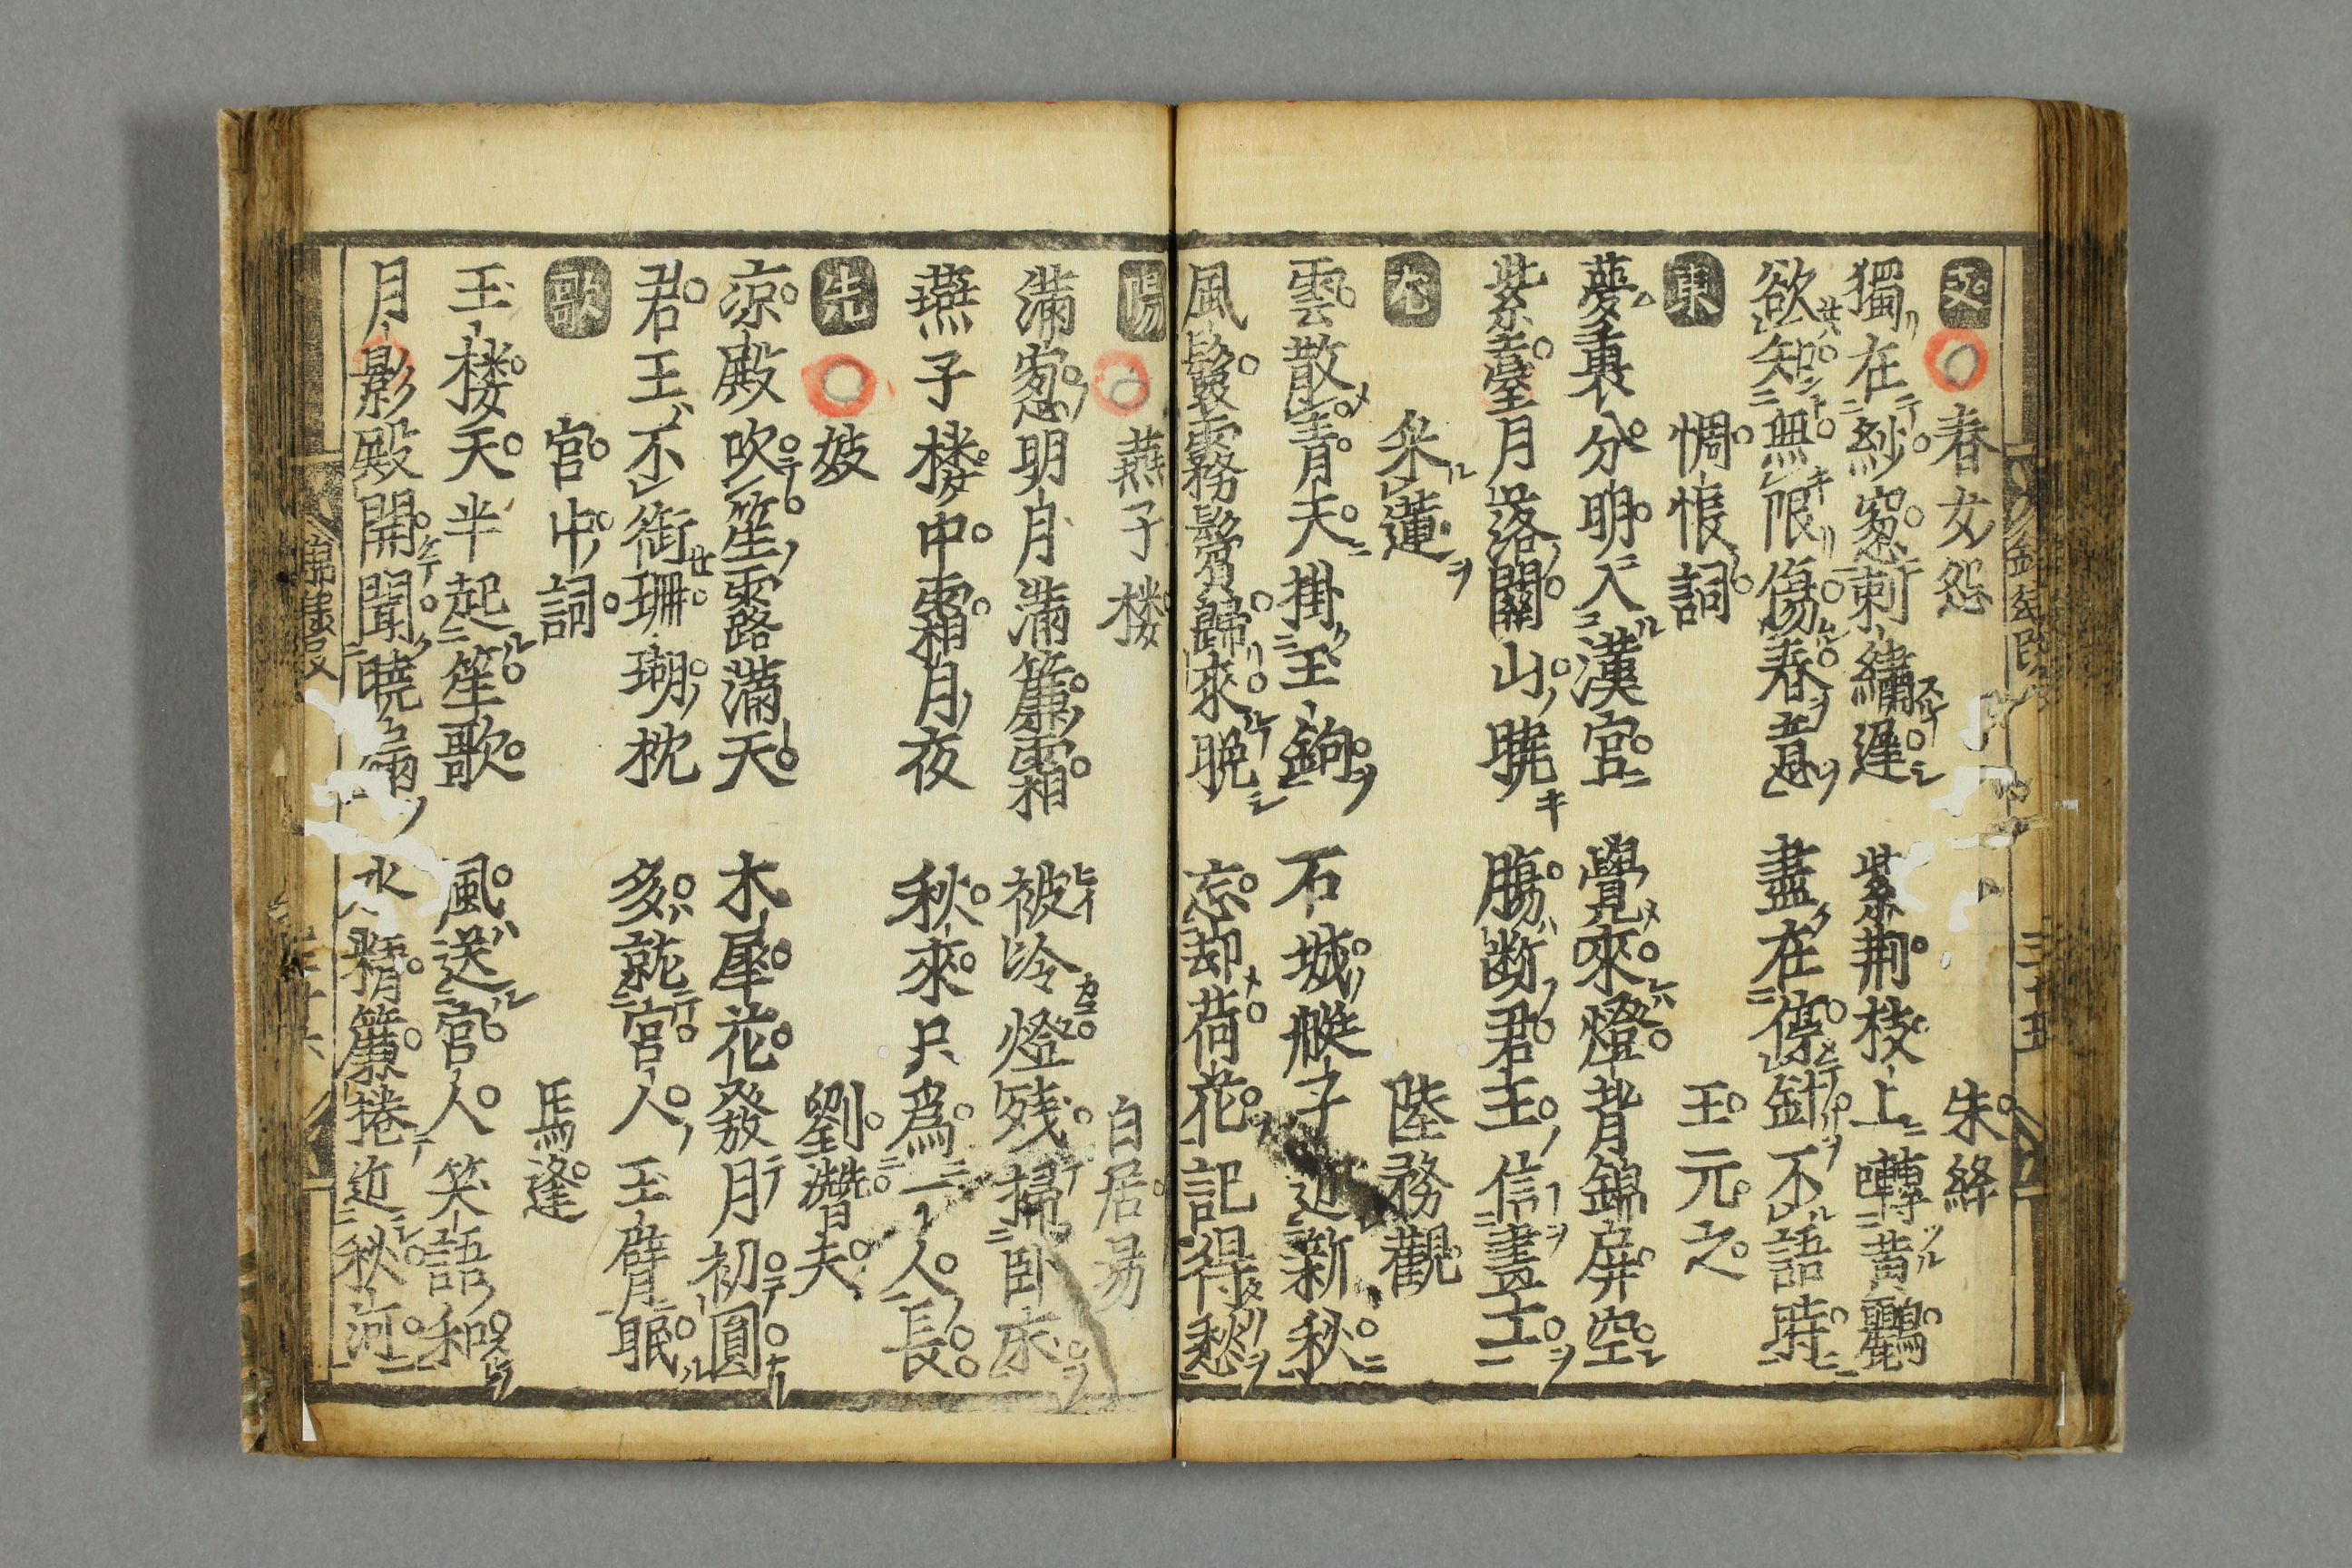 支 春女怨 朱絳
獨在紗窓刺繡遅 紫荆枝上囀黄鸝
欲知無限傷春意 盡在停針不語時
東 惆悵詞 王元之
夢裏分明入漢宮 覺來燈背錦屏空
紫臺月落關山曉 膓断君王信畫工
尤 采蓮 陸務觀
雲散青天掛玉鉤 石城艇子近新秋
風鬟霧鬢歸來晩 忘却荷花記得愁
陽 燕子楼 白居易
満窓明月満簾霜 被冷燈残掃卧床
燕子楼中霜月夜 秋來只爲一人長
先 妓 劉潜夫
凉殿吹笙露満天 木犀花發月初圓
君王不銜珊瑚枕 多就宮人玉臂眠
歌 宮中詞 馬逢
玉楼天半起笙歌 風送宮人笑語和
月影殿開聞曉漏 水精簾捲近秋河